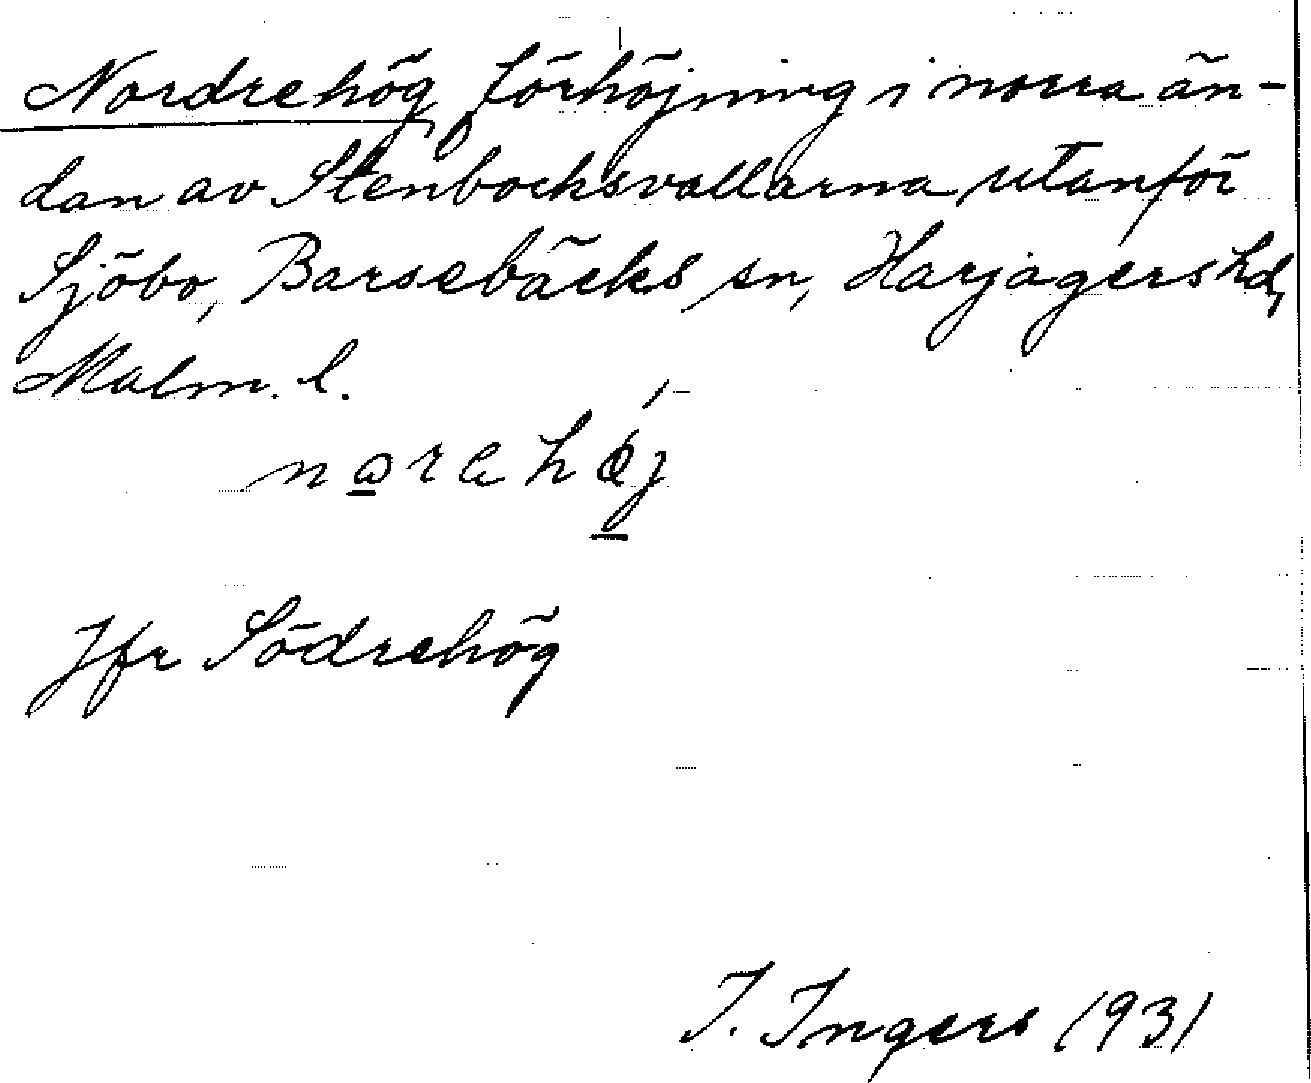 Nordrehög, förhöjning i norra än-
dan av Stenbocksvallarna utanför
Sjöbo, Barsebäcks sn, Harjagers hd,
Malm. l.
Jfr Södrehög
I. Ingers 1931